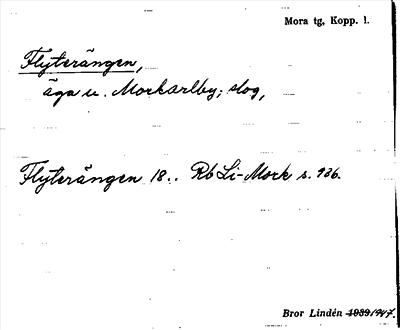 Mora tg, Kopp. l.
Flyterängen,
äga u. Morkarlby; slog,
Flyterängen 18.. Rb Li-Mork s. 926.
Bror Lindén 1939/947.